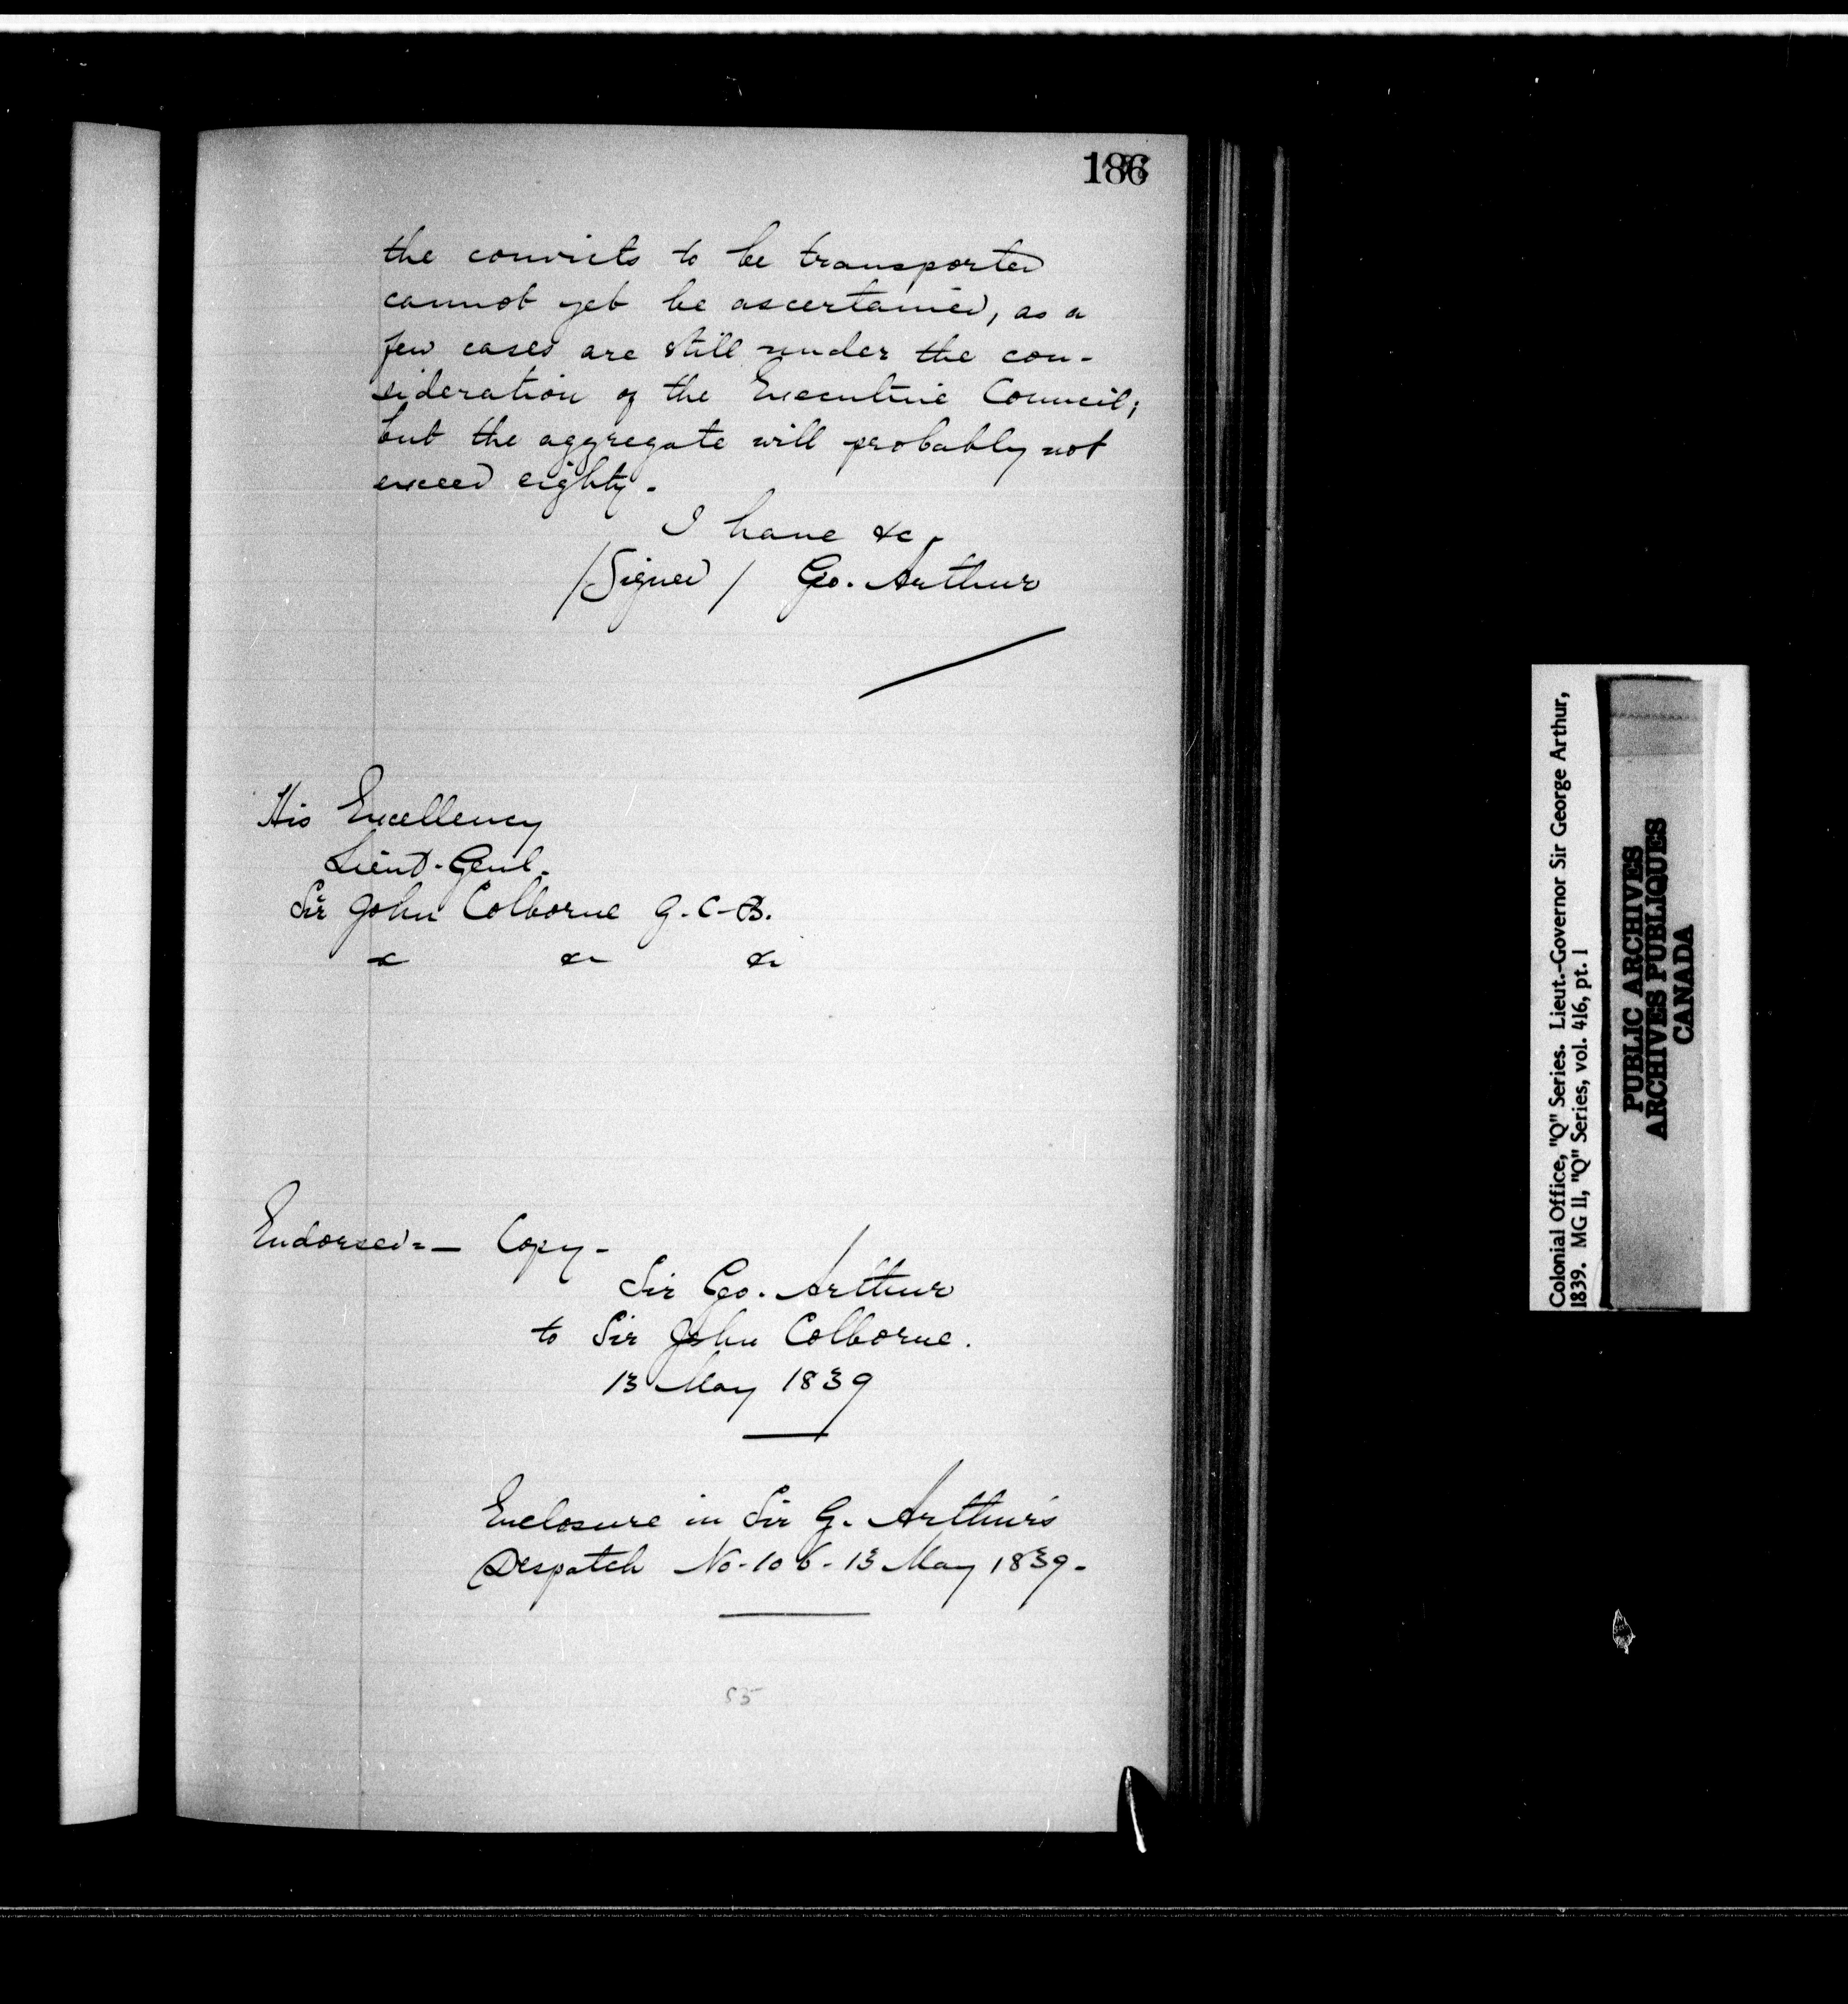 186
the convicts to be transported
cannot yet be ascertained, as a
few cases are still under the con-
sideration of the Executive Council;
but the aggregate will probably not
exceed eighty.
I have &c.
/Signed/ Geo. Arthur
His Excellency
Lieut-Genl.
Sir John Colborne G.C.B.
&c &c &c
Endorsed:- Copy-
Sir Geo. Arthur
to Sir John Colborne.
13 May 1839
Enclosure in Sir G. Arthur's
Despatch No. 106 - 13 May 1839.
Colonial Office, "Q" Series. Lieut.-Governor Sir George Arthur,
1839. MG 11, "Q" Series, vol. 416, pt. 1
PUBLIC ARCHIVES
ARCHIVES PUBLIQUES
CANADA